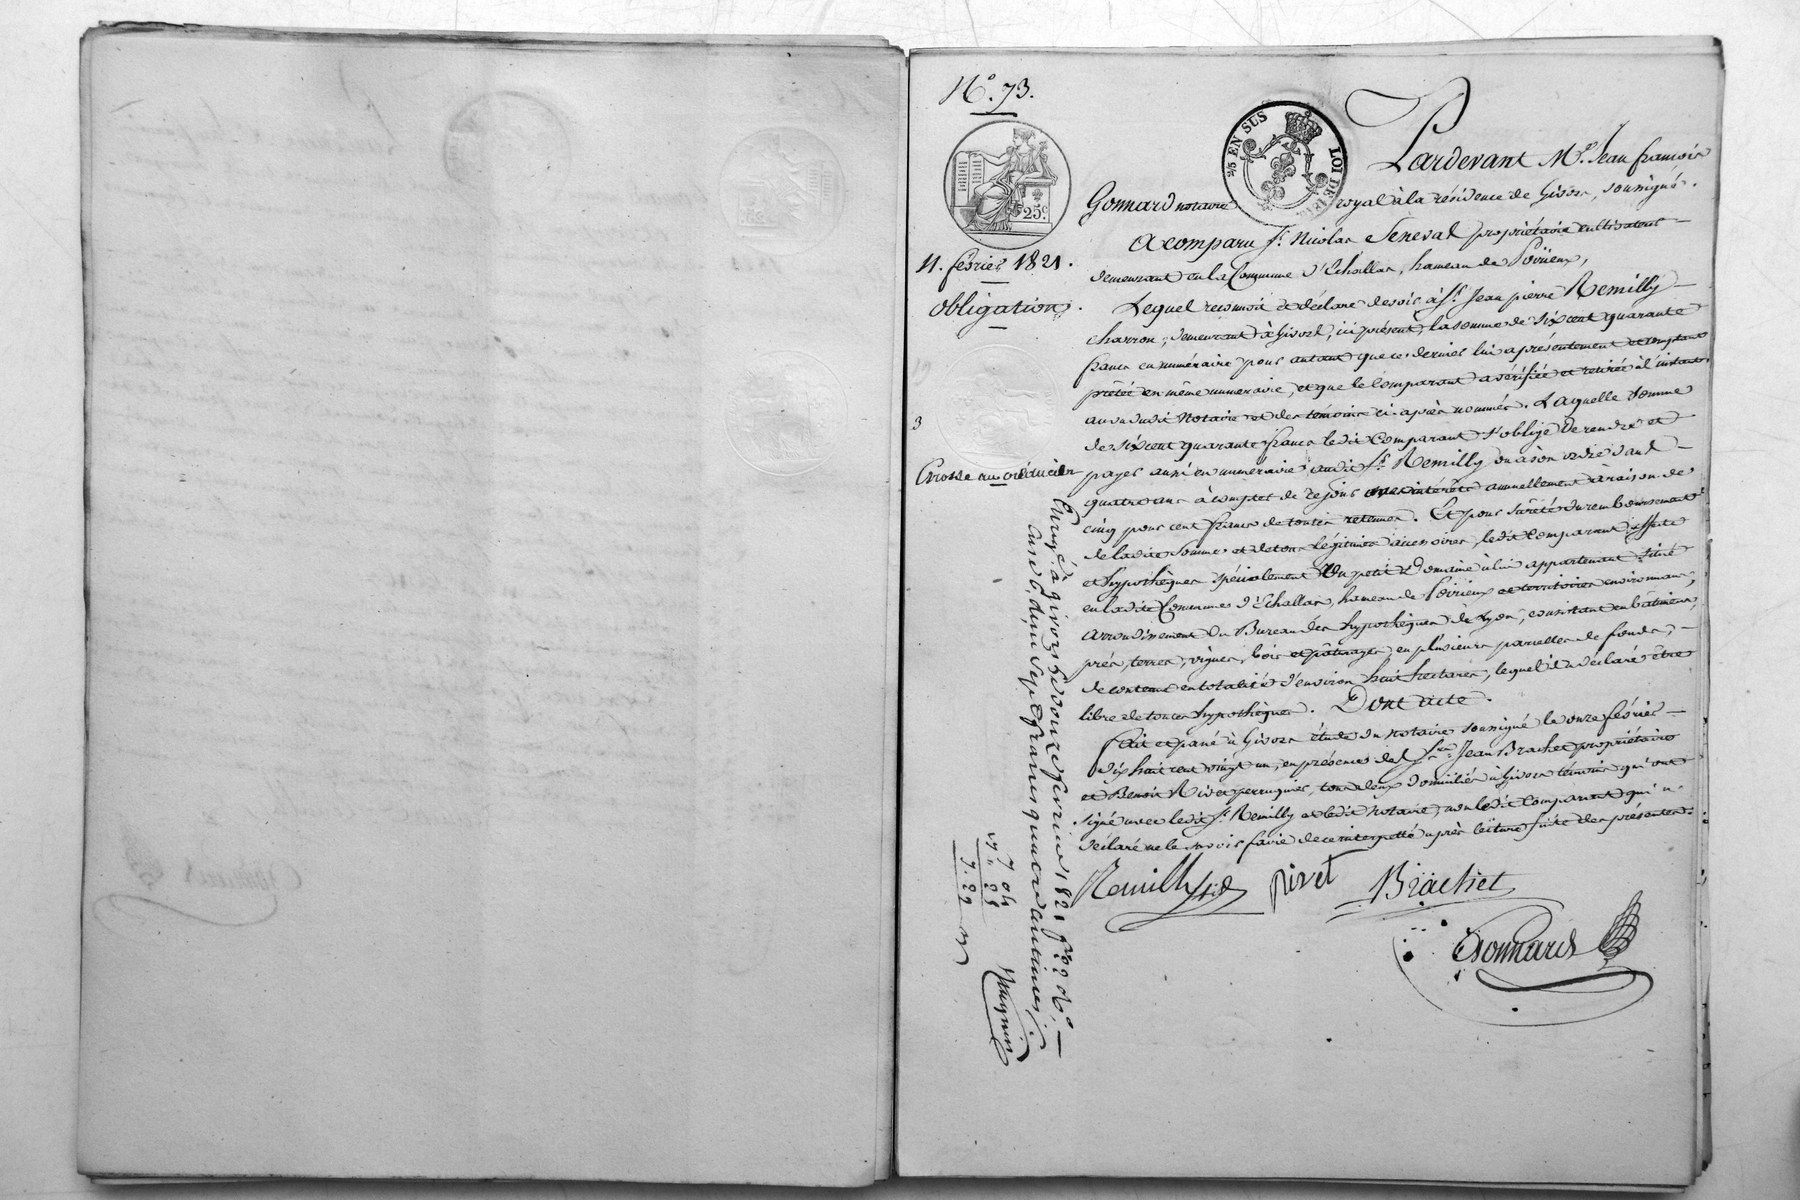 N.° 73.
25.c
2/5 EN SUS
LOI DE
11. février 1821.
obligation.
3
Grosse au créancier
Pardevant M.e Jean françois
Gonnard notaire royal à la résidence de Givors, soussigné.
A comparu s.r Nicolas Seneval propriétaire cultivateur
demeurant en la Commune d'Echallas, hameau de Poirieux,
Lequel reconnoit et déclare devoir à s.r Jean pierre Remilly
charron, demeurant à Givors, ici présent, la somme de six cent quarante
francs en numéraire pour autant que ce dernier lui a présentement et comptant
prêtée en même numéraire, et que le Comparant a vérifiée et retirée à l'instant
au vu dudit Notaire et des témoins ci-après nommés. Laquelle somme
de six cent quarante francs ledit Comparant s'oblige de rendre et
payer aussi en numéraire audit s.r Remilly ou à son ordre dans
quatre ans à compter de ce jour avec intérêts annuellement à raison de
cinq pour cent francs de toutes retenues. Et pour sûreté du remboursement
de ladite somme et de tous légitimes accessoires, ledit Comparant affecte
et hypothèque spécialement Un petit Domaine à lui appartenant situé
en ladite Commune d'Echallas, hameau de Poirieux et territoires environnans,
arrondissement du Bureau des hypothèques de Lyon, consistant en bâtimens,
prés, terres, vignes, bois et pâturages, en plusieurs parcelles de fonds,
de contenue en totalité d'environ huit hectares, lequel il a déclaré être
libre de toutes hypothèques. Dont acte.
fait et passé à Givors étude du notaire soussigné le onze février
dix huit cent vingt un, en présence des s.rs Jean Brachet propriétaire
et Benoit Rivet perruquier, tous deux domiciliés à Givors témoins qui ont
signé avec ledit s.r Remilly et ledit Notaire, non ledit Comparant qui a
déclaré ne le savoir faire de ce interpellé après lecture faite des présentes.
Remilly
rivet
Brachet
Gonnard
Enregé à givors le douze février 1821 f.o 22 v.o
Case 6, dans sept francs quatre centimes
7 04
7. 22